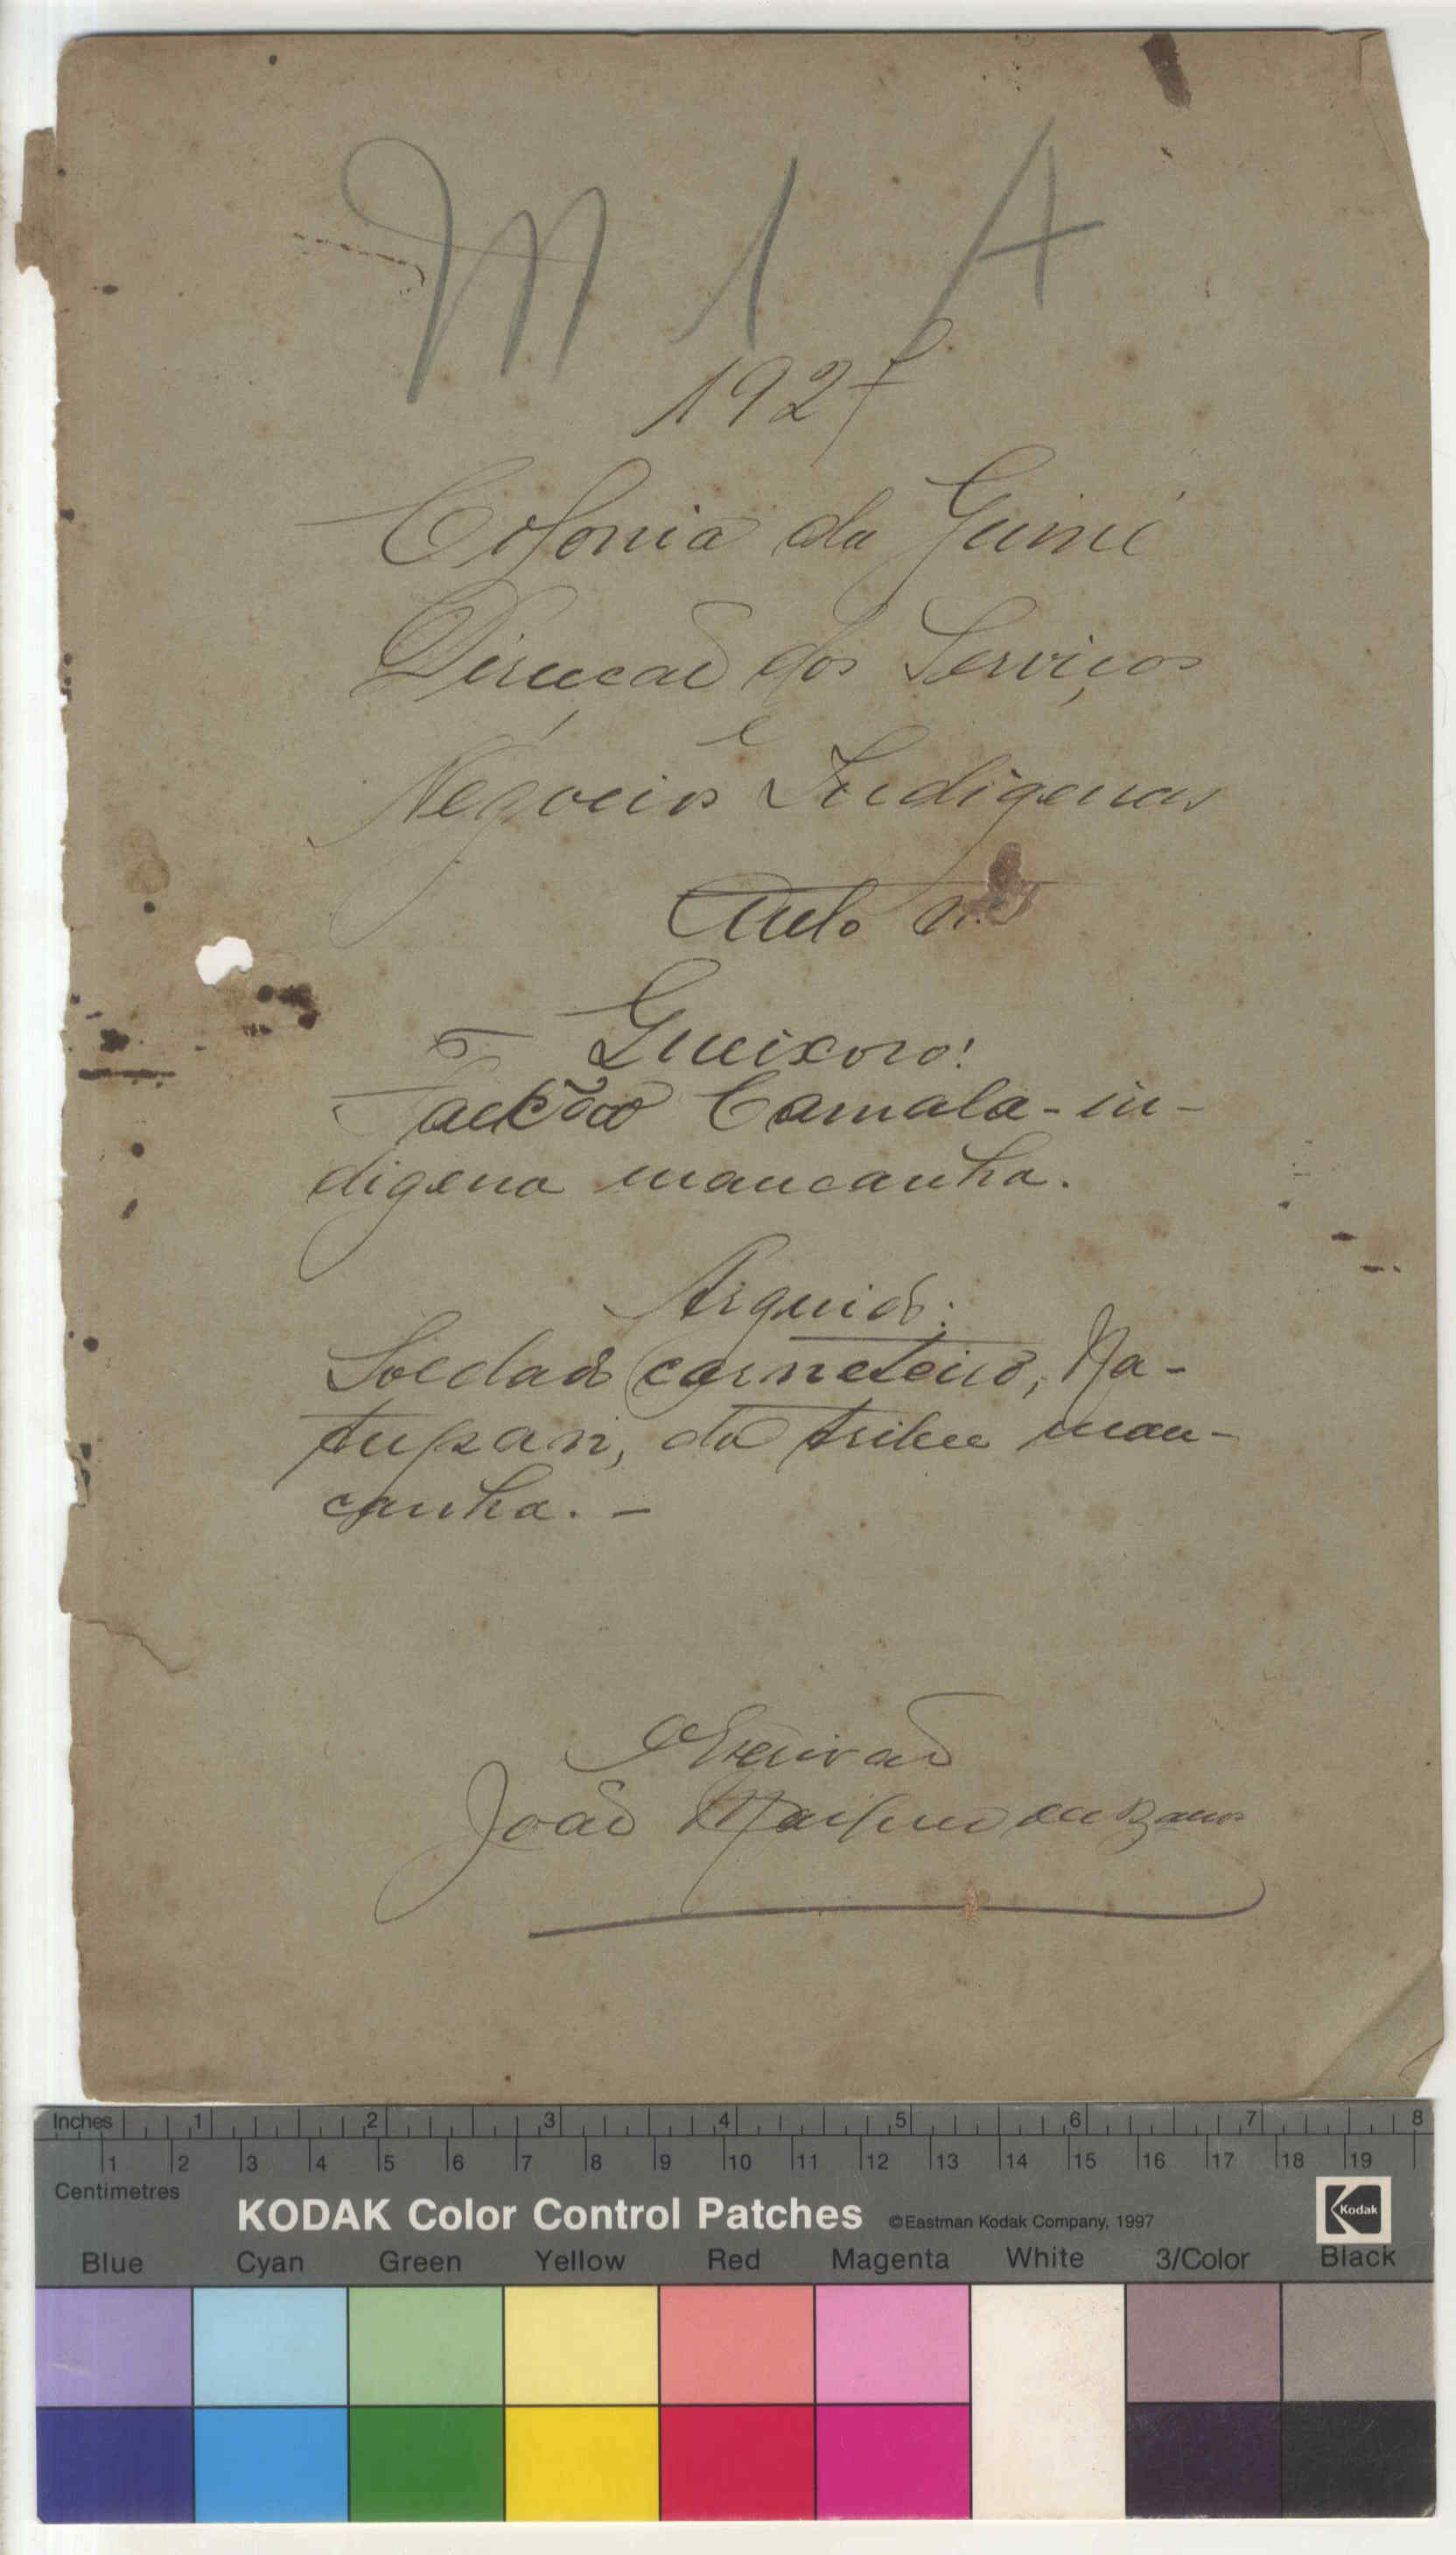 M 1 A
1927
Colonia da Guiné
Direcção dos Serviços
e
Negocios Indigenas
Auto n.º
Queixoso:
Camala - in-
digena mancanha.
Arguido:
Soldado corneteiro, Na-
tupan, da tribu man-
canha. -
O Escrivão
João de Barros
Inches 1 2 3 4 5 6 7 8
1 2 3 4 5 6 7 8 9 10 11 12 13 14 15 16 17 18 19
Centimetres
KODAK Color Control Patches ©Eastman Kodak Company, 1997 Kodak
Blue Cyan Green Yellow Red Magenta White 3/Color Black